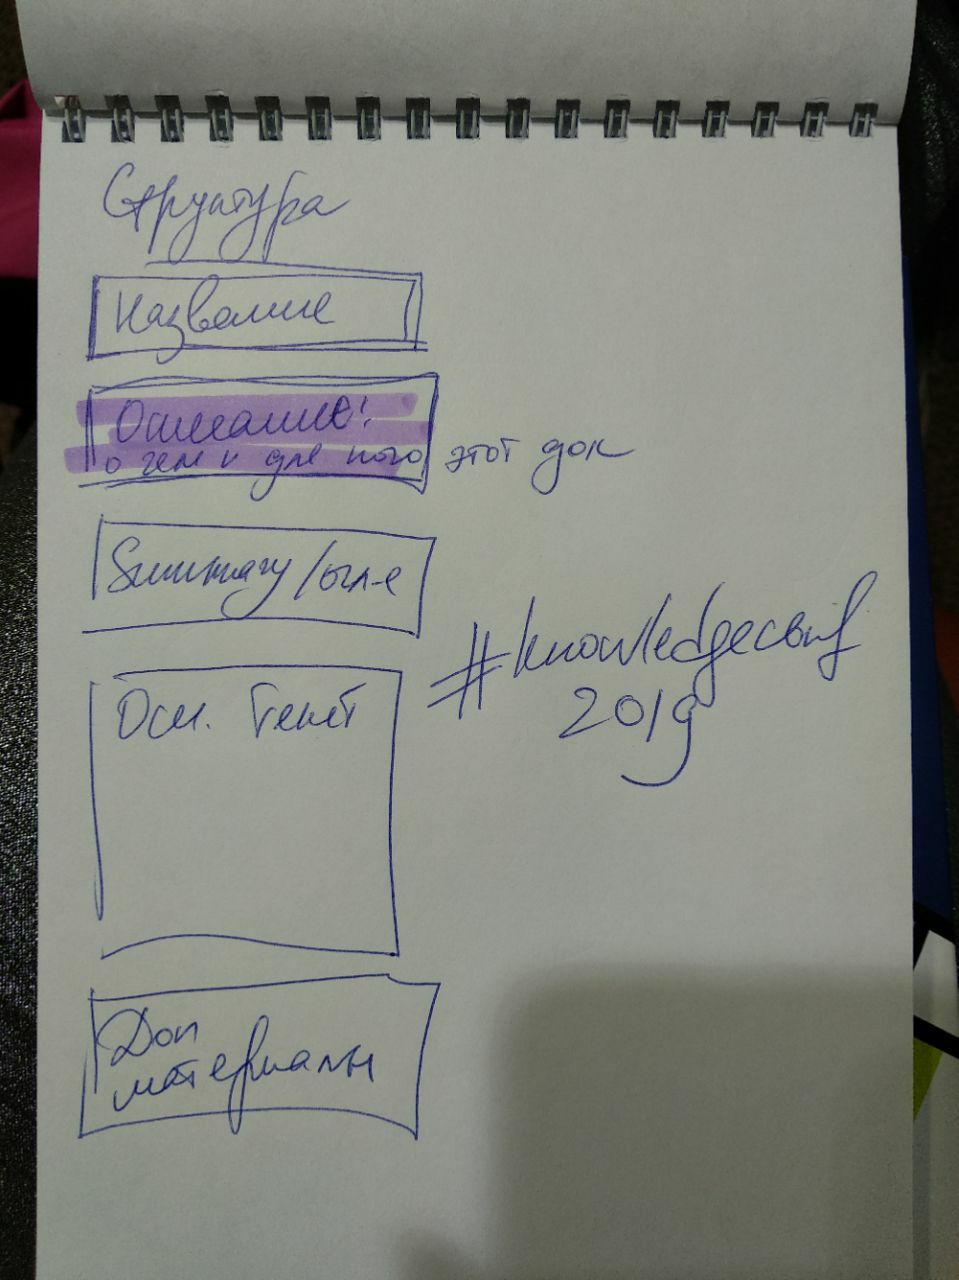 Структура
Название
Описание!
о чем и для кого этот док
Summary/огл-е
Осн. текст
Доп
материалы
#knowledgeconf
2019